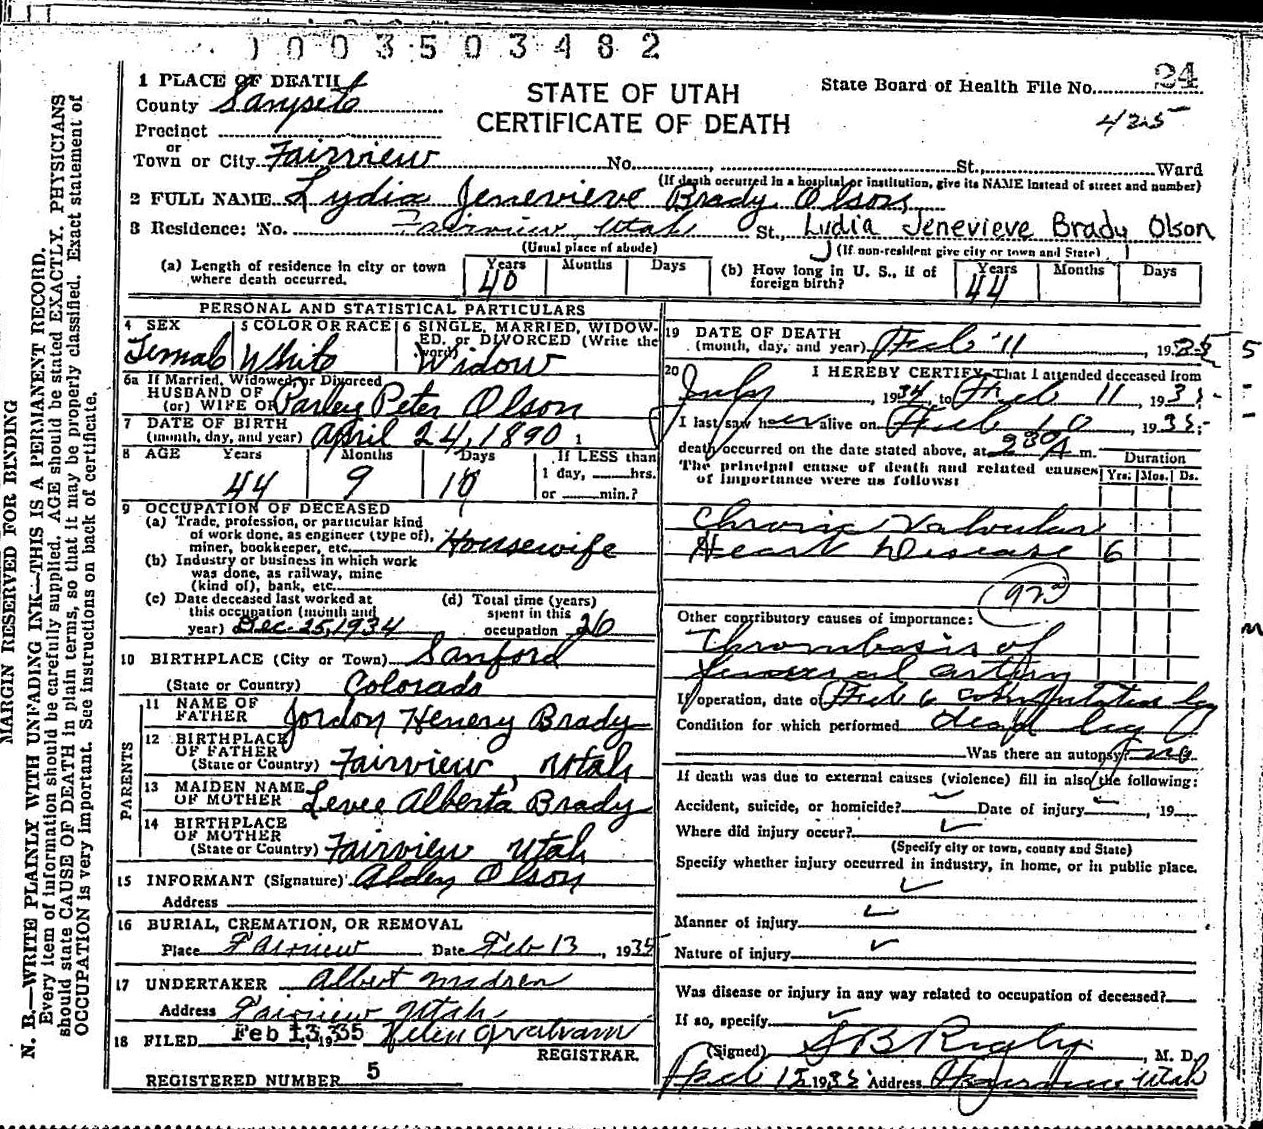 1003503482
1 PLACE OF DEATH
County Sanpete
Precinct
or
Town or City Fairview No. , St., Ward
STATE OF UTAH
CERTIFICATE OF DEATH
State Board of Health File No. 24
425
(If death occurred in a hospital or institution, give its NAME instead of street and number)
2 FULL NAME Lydia Jenevieve Brady Olson
3 Residence: No. Fairview, Utah St., Lydia Jenevieve Brady Olson
(Usual place of abode) (If non-resident give city or town and State)
(a) Length of residence in city or town where death occurred. Years 40 Months Days
(b) How long in U. S., if of foreign birth? Years 44 Months Days
PERSONAL AND STATISTICAL PARTICULARS
4 SEX Female
5 COLOR OR RACE White
6 SINGLE, MARRIED, WIDOWED, or DIVORCED (Write the word) Widow
6a If Married, Widowed, or Divorced
HUSBAND OF
(or) WIFE OF Parley Peter Olson
7 DATE OF BIRTH
(month, day, and year) April 24, 1890 1
8 AGE Years 44 Months 9 Days 18 If LESS than
1 day, hrs.
or min.?
9 OCCUPATION OF DECEASED
(a) Trade, profession, or particular kind
of work done, as engineer (type of),
miner, bookkeeper, etc. Housewife
(b) Industry or business in which work
was done, as railway, mine
(kind of), bank, etc.
(c) Date deceased last worked at
this occupation (month and
year) Dec-25, 1934
(d) Total time (years)
spent in this
occupation 26
10 BIRTHPLACE (City or Town) Sanford
(State or Country) Colorado
PARENTS
11 NAME OF
FATHER Jordon Henery Brady
12 BIRTHPLACE
OF FATHER
(State or Country) Fairview, Utah
13 MAIDEN NAME
OF MOTHER Levee Alberta Brady
14 BIRTHPLACE
OF MOTHER
(State or Country) Fairview Utah
15 INFORMANT (Signature) Olson
Address
16 BURIAL, CREMATION, OR REMOVAL
Place Fairview Date Feb 13, 1935
17 UNDERTAKER Albert Madsen
Address Fairview Utah
18 FILED Feb 13, 1935 Helen
REGISTRAR.
REGISTERED NUMBER 5
19 DATE OF DEATH
(month, day, and year) Feb 11, 1935
5
20 I HEREBY CERTIFY, That I attended deceased from
July, 1934, to Feb 11, 1935
I last saw her alive on Feb 10, 1935
death occurred on the date stated above, at 230 A m.
The principal cause of death and related causes
of importance were as follows:
Duration
Yrs. Mos. Ds.
Chronic Valvular
Heart Disease 6
Other contributory causes of importance:
Thrombosis of
femoral artery
If operation, date of Feb 6 leg
Condition for which performed dead leg
Was there an autopsy? no
If death was due to external causes (violence) fill in also the following:
Accident, suicide, or homicide? Date of injury , 19
Where did injury occur?
(Specify city or town, county and State)
Specify whether injury occurred in industry, in home, or in public place.
Manner of injury
Nature of injury
Was disease or injury in any way related to occupation of deceased?
If so, specify
(Signed) S B Rigby, M. D.
Feb 1935 Address Fairview Utah
MARGIN RESERVED FOR BINDING
N. B.—WRITE PLAINLY WITH UNFADING INK—THIS IS A PERMANENT RECORD.
Every item of information should be carefully supplied. AGE should be stated EXACTLY. PHYSICIANS
should state CAUSE OF DEATH in plain terms, so that it may be properly classified. Exact statement of
OCCUPATION is very important. See instructions on back of certificate.